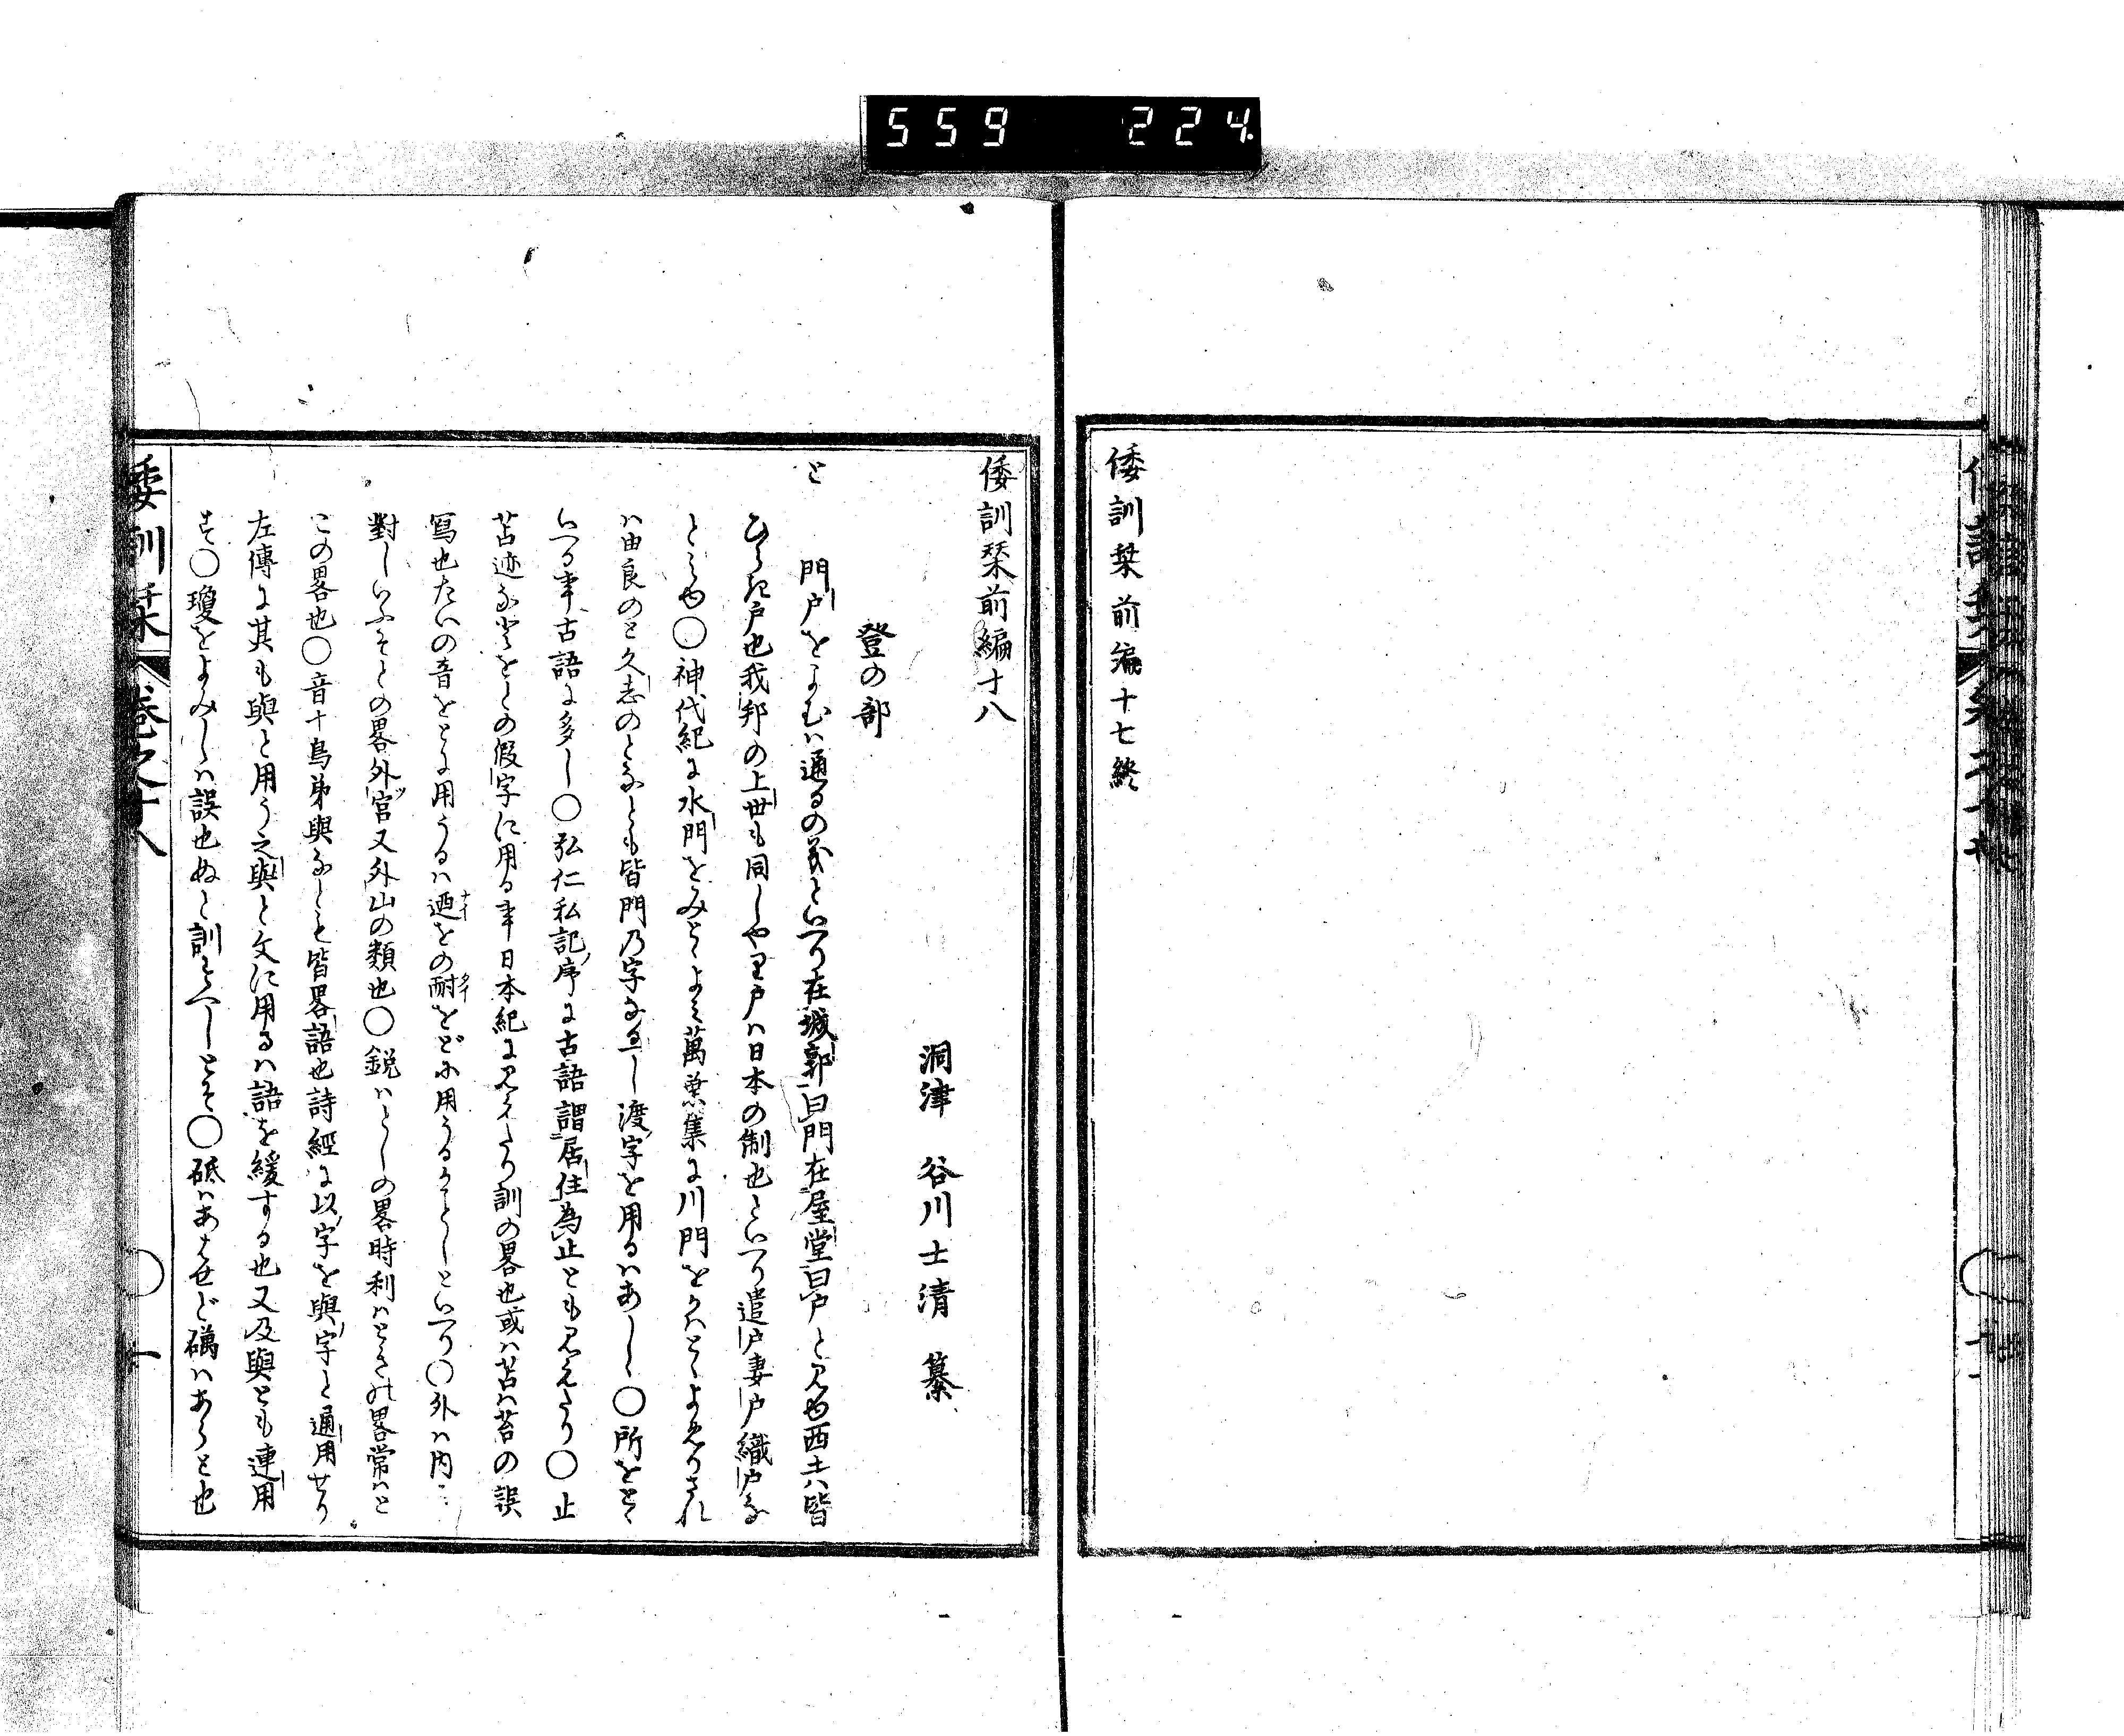 559 224
倭訓栞前編十七終
倭訓栞前編十八
洞津 谷川士清 纂
登の部
と 門戸をよむハ通るの義といへり在城郭曰門在屋堂曰戸と見ゆ西土ハ皆
ひらき戸也我邦の上世も同しやり戸ハ日本の制也といへり遣戸妻戸織戸な
とみゆ〇神代紀に水門をみとゝよみ萬葉集に川門をかハとゝよめりされ
ハ由良のと久志のとなとも皆門乃字なるへし渡字を用るハあしゝ〇所をとゝ
いふ事古語に多し〇弘仁私記序に古語謂居住為止とも見えたり〇止
苫迹なとをとの假字に用る事日本紀に見えたり訓の畧也或ハ苫ハ苔の誤
寫也たいの音をとに用うるハ迺をの耐をどに用うるかことしといへり〇外ハ内に
對しいふそとの畧外宮又外山の類也〇鋭ハとしの畧時利ハときの畧常ハと
この畧也〇音十鳥弟與なとと皆畧語也詩經に以字を與字と通用せり
左傳に其も與と用う之與と文に用るハ語を緩する也又及與とも連用
す〇瓊をよみしハ誤也ぬと訓すへしとそ〇砥ハあはせど礪ハあらと也
倭訓栞 巻之十八 一